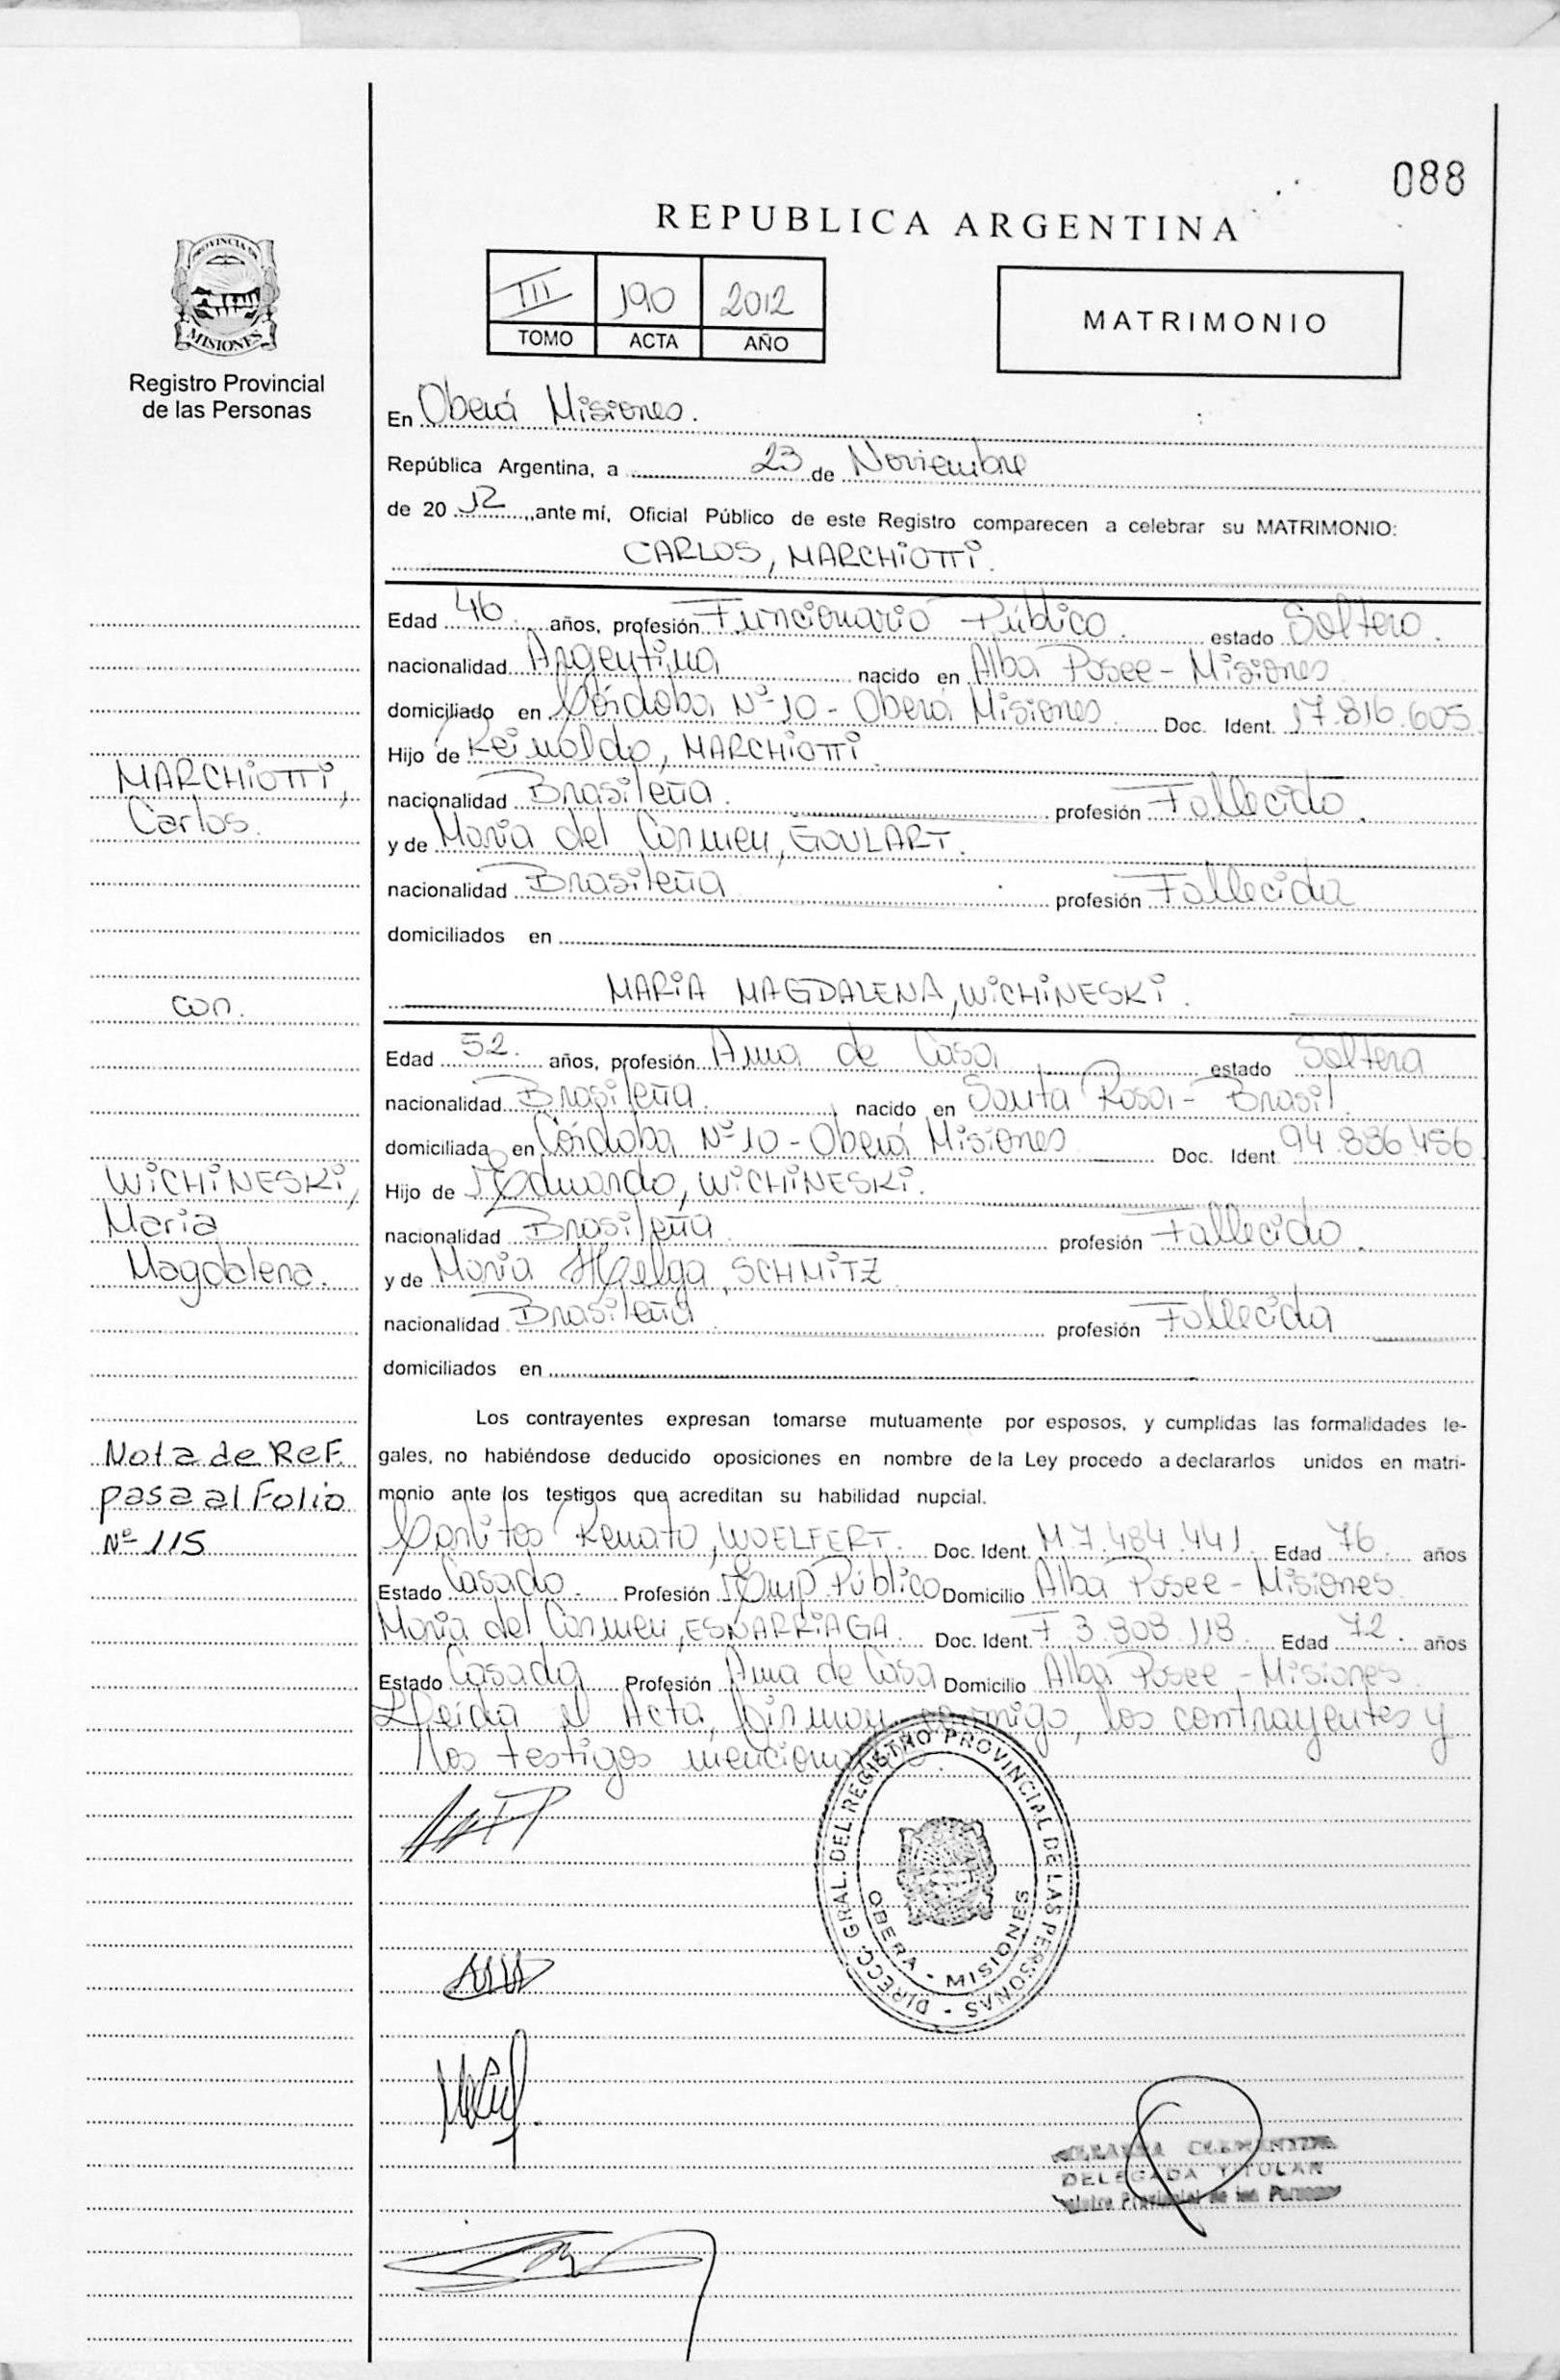 088
REPUBLICA ARGENTINA
PROVINCIA DE
MISIONES
Registro Provincial
de las Personas
III 190 2012
TOMO ACTA AÑO
MATRIMONIO
En Oberá Misiones.
República Argentina, a 23 de Noviembre
de 20 12, ante mí, Oficial Público de este Registro comparecen a celebrar su MATRIMONIO:
CARLOS, MARCHIOTTI.
Edad 46 años, profesión Funcionario Público. estado Soltero.
nacionalidad Argentina nacido en Alba Posee - Misiones
domiciliado en Córdoba Nº 10 - Oberá Misiones Doc. Ident. 17.816.605
Hijo de Reinoldo, MARCHIOTTI.
nacionalidad Brasileña. profesión Fallecido.
y de María del Carmen, GOULART.
nacionalidad Brasileña profesión Fallecida
domiciliados en
MARIA MAGDALENA, WICHINESKI.
Edad 52. años, profesión Ama de Casa estado Soltera
nacionalidad Brasileña. nacido en Santa Rosa - Brasil.
domiciliada en Córdoba Nº 10 - Oberá Misiones Doc. Ident. 94.886.456
Hijo de Eduardo, WICHINESKI.
nacionalidad Brasileña profesión Fallecido.
y de María Helga, SCHMITZ
nacionalidad Brasileña profesión Fallecida
domiciliados en
Los contrayentes expresan tomarse mutuamente por esposos, y cumplidas las formalidades le-
gales, no habiéndose deducido oposiciones en nombre de la Ley procedo a declararlos unidos en matri-
monio ante los testigos que acreditan su habilidad nupcial.
Carlitos Renato, WOELFERT. Doc. Ident. M 7.484.441. Edad 76. años
Estado Casado. Profesión Emp. Público Domicilio Alba Posee - Misiones
María del Carmen, ESNARRIAGA. Doc. Ident. F 3.808.118. Edad 72. años
Estado Casada Profesión Ama de Casa Domicilio Alba Posee - Misiones
Leída el Acta, firman conmigo, los contrayentes y
los testigos
MARCHIOTTI,
Carlos.
con.
WICHINESKI,
Maria
Magdalena.
Nota de Ref.
pasa al Folio
Nº 115
DIRECC. GRAL. DEL REGISTRO PROVINCIAL DE LAS PERSONAS
OBERA - MISIONES
DELEGADA TITULAR
Provincial de las Personas